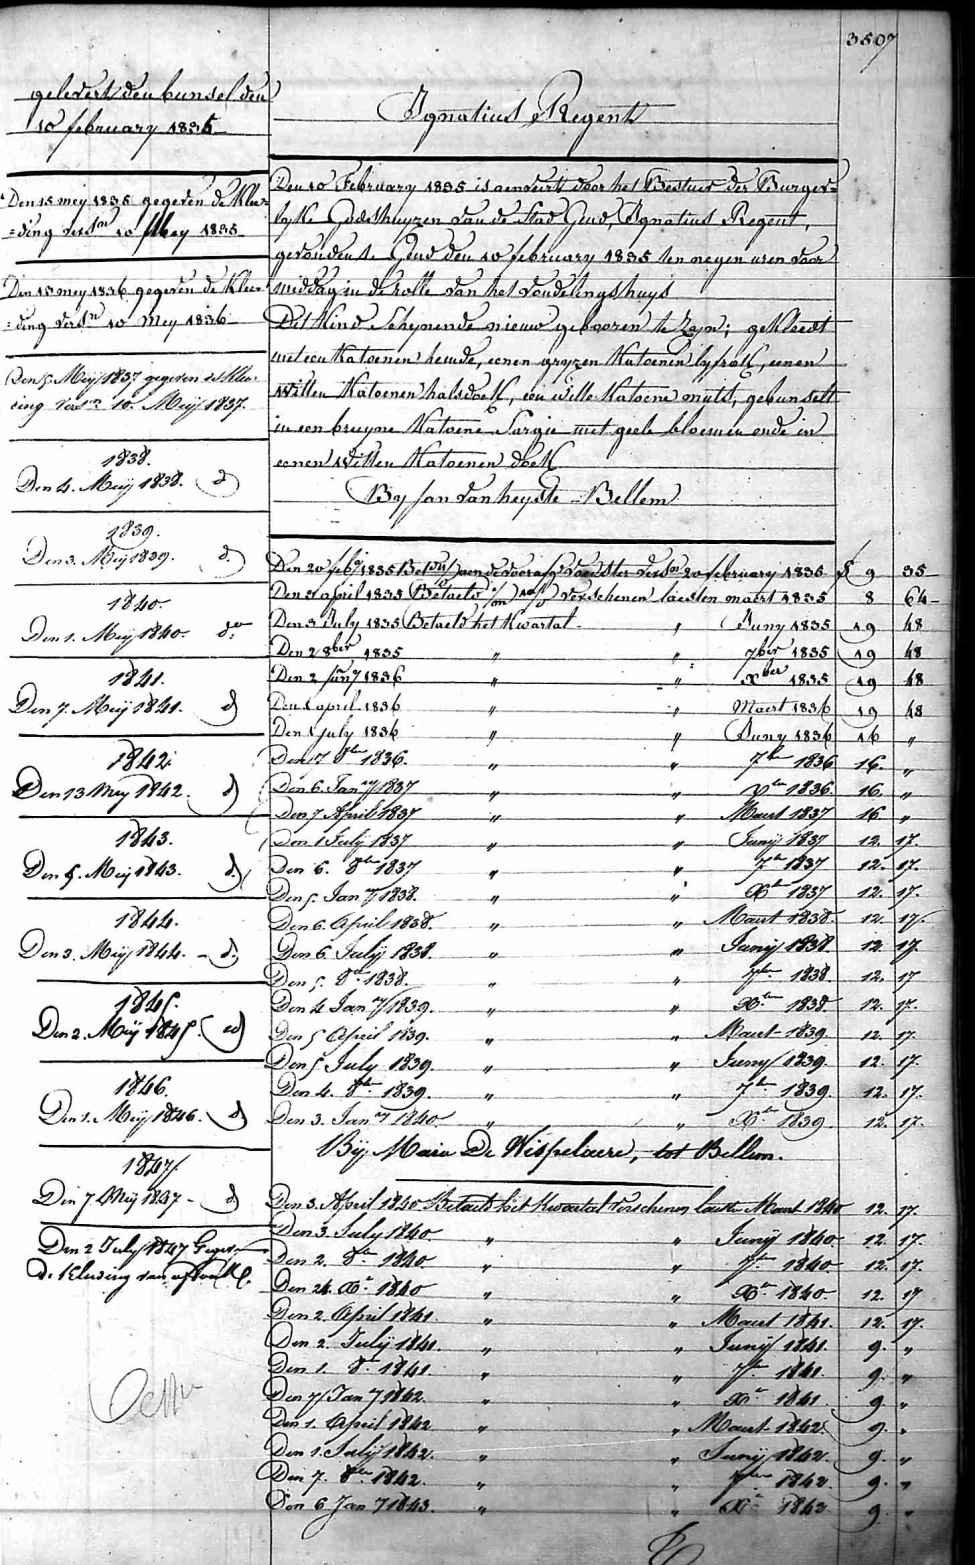 3507
gelevert den bunsel den
10 february 1835
Den 15 mey 1835 gegeven de Klee=
=ding versn 10 Mey 1835
Den 13 mey 1836 gegeven de Klee=
=ding versn 10 Mey 1836
Den 5 Meij 1837 gegeven de Klee=
ding versn 10 Meij 1837.
1838.
Den 4. Meij 1838. d
1839.
Den 3. Meij 1839. d.
1840.
Den 1. Meij 1840. do
1841.
Den 7. Meij 1841. d
1842.
Den 13 Mey 1842. d
1843.
Den 5. Meij 1843. d.
1844.
Den 3. Meij 1844. - d.
1845.
Den 2. Meij 1845. d
1846.
Den 1. Meij 1846. d
1847.
Den 7 Meij 1847 - d
Den 2 July 1847
de Kleeding van
Ignatius Regent
Den 10 February 1835 is aenveirt door het Bestuer der Burger=
lyke Godshuyzen van de Stad Gend, Ignatius Regent,
gevonden te Gend den 10 february 1835 ten negen uren voor
middag in de rolle van het vondelingshuys
Dit Kind schynende nieuw gebooren te zyn; gekleedt
met een Katoenen hemde, eenen gryzen Katoenen lyfrok, eenen
witten Katoenen halsdoek, een witte Katoene muts, gebunselt
in een bruyne Katoene Sargie met geele bloemen ende in
eenen witten Katoenen doek
By Jan van heyste - Bellem
Den 20 feby 1835 versn 20 february 1835 f 9 35
Den 2 april 1835 Betaelt verschenen laesten maert 1835 8 64
Den 3 July 1835 Betaelt het Kwartal " Juny 1835 19 48
Den 2 8ber 1835 " " 7ber 1835 19 48
Den 2 Jany 1836 " " Xber 1835 19 48
Den 1 april 1836 " " Maert 1836 19 48
Den 1 July 1836 " " Juny 1836 16 "
Den 17 8ber 1836. " " 7ber 1836 16. "
Den 6. Jany 1837 " " Xber 1836. 16. "
Den 7 April 1837 " " Maert 1837 16 "
Den 1 July 1837 " " Junij 1837 12. 17.
Den 6. 8ber 1837 " " 7ber 1837 12. 17.
Den 5. Jany 1838. " " Xber 1837 12. 17.
Den 6. April 1838. " " Maert 1838. 12. 17.
Den 6 July 1838. " " Junij 1838. 12. 17.
Den 5. 8ber 1838. " " 7ber 1838. 12. 17
Den 4 Jany 1839. " " Xber 1838 12. 17.
Den 5 April 1839. " " Maert 1839. 12. 17.
Den 5 July 1839. " " Junij 1839. 12. 17.
Den 4. 8ber 1839. " " 7ber 1839. 12. 17.
Den 3. Jany 1840. " " Xber 1839. 12. 17.
Bij Marie De Wispelaere, tot Bellem.
Den 3. April 1840 Betaeld het Kwartal verschenen laesten Maert 1840 12. 17.
Den 3. July 1840 " " Junij 1840 12. 17.
Den 2. 8ber 1840. " " 7ber 1840. 12. 17.
Den 24. Xber 1840 " " Xber 1840 12. 17
Den 2. April 1841. " " Maert 1841. 12. 17.
Den 2. Julij 1841. " " Junij 1841. 9. "
Den 1. 8ber 1841 " " 7ber 1841. 9. "
Den 7 Jany 1842. " " Xber 1841 9. "
Den 1. April 1842 " " Maert 1842. 9. "
Den 1. Julij 1842. " " Junij 1842. 9. "
Den 7. 8ber 1842. " " 7ber 1842 9. "
Den 6 Jany 1843. " " Xber 1842 9. "